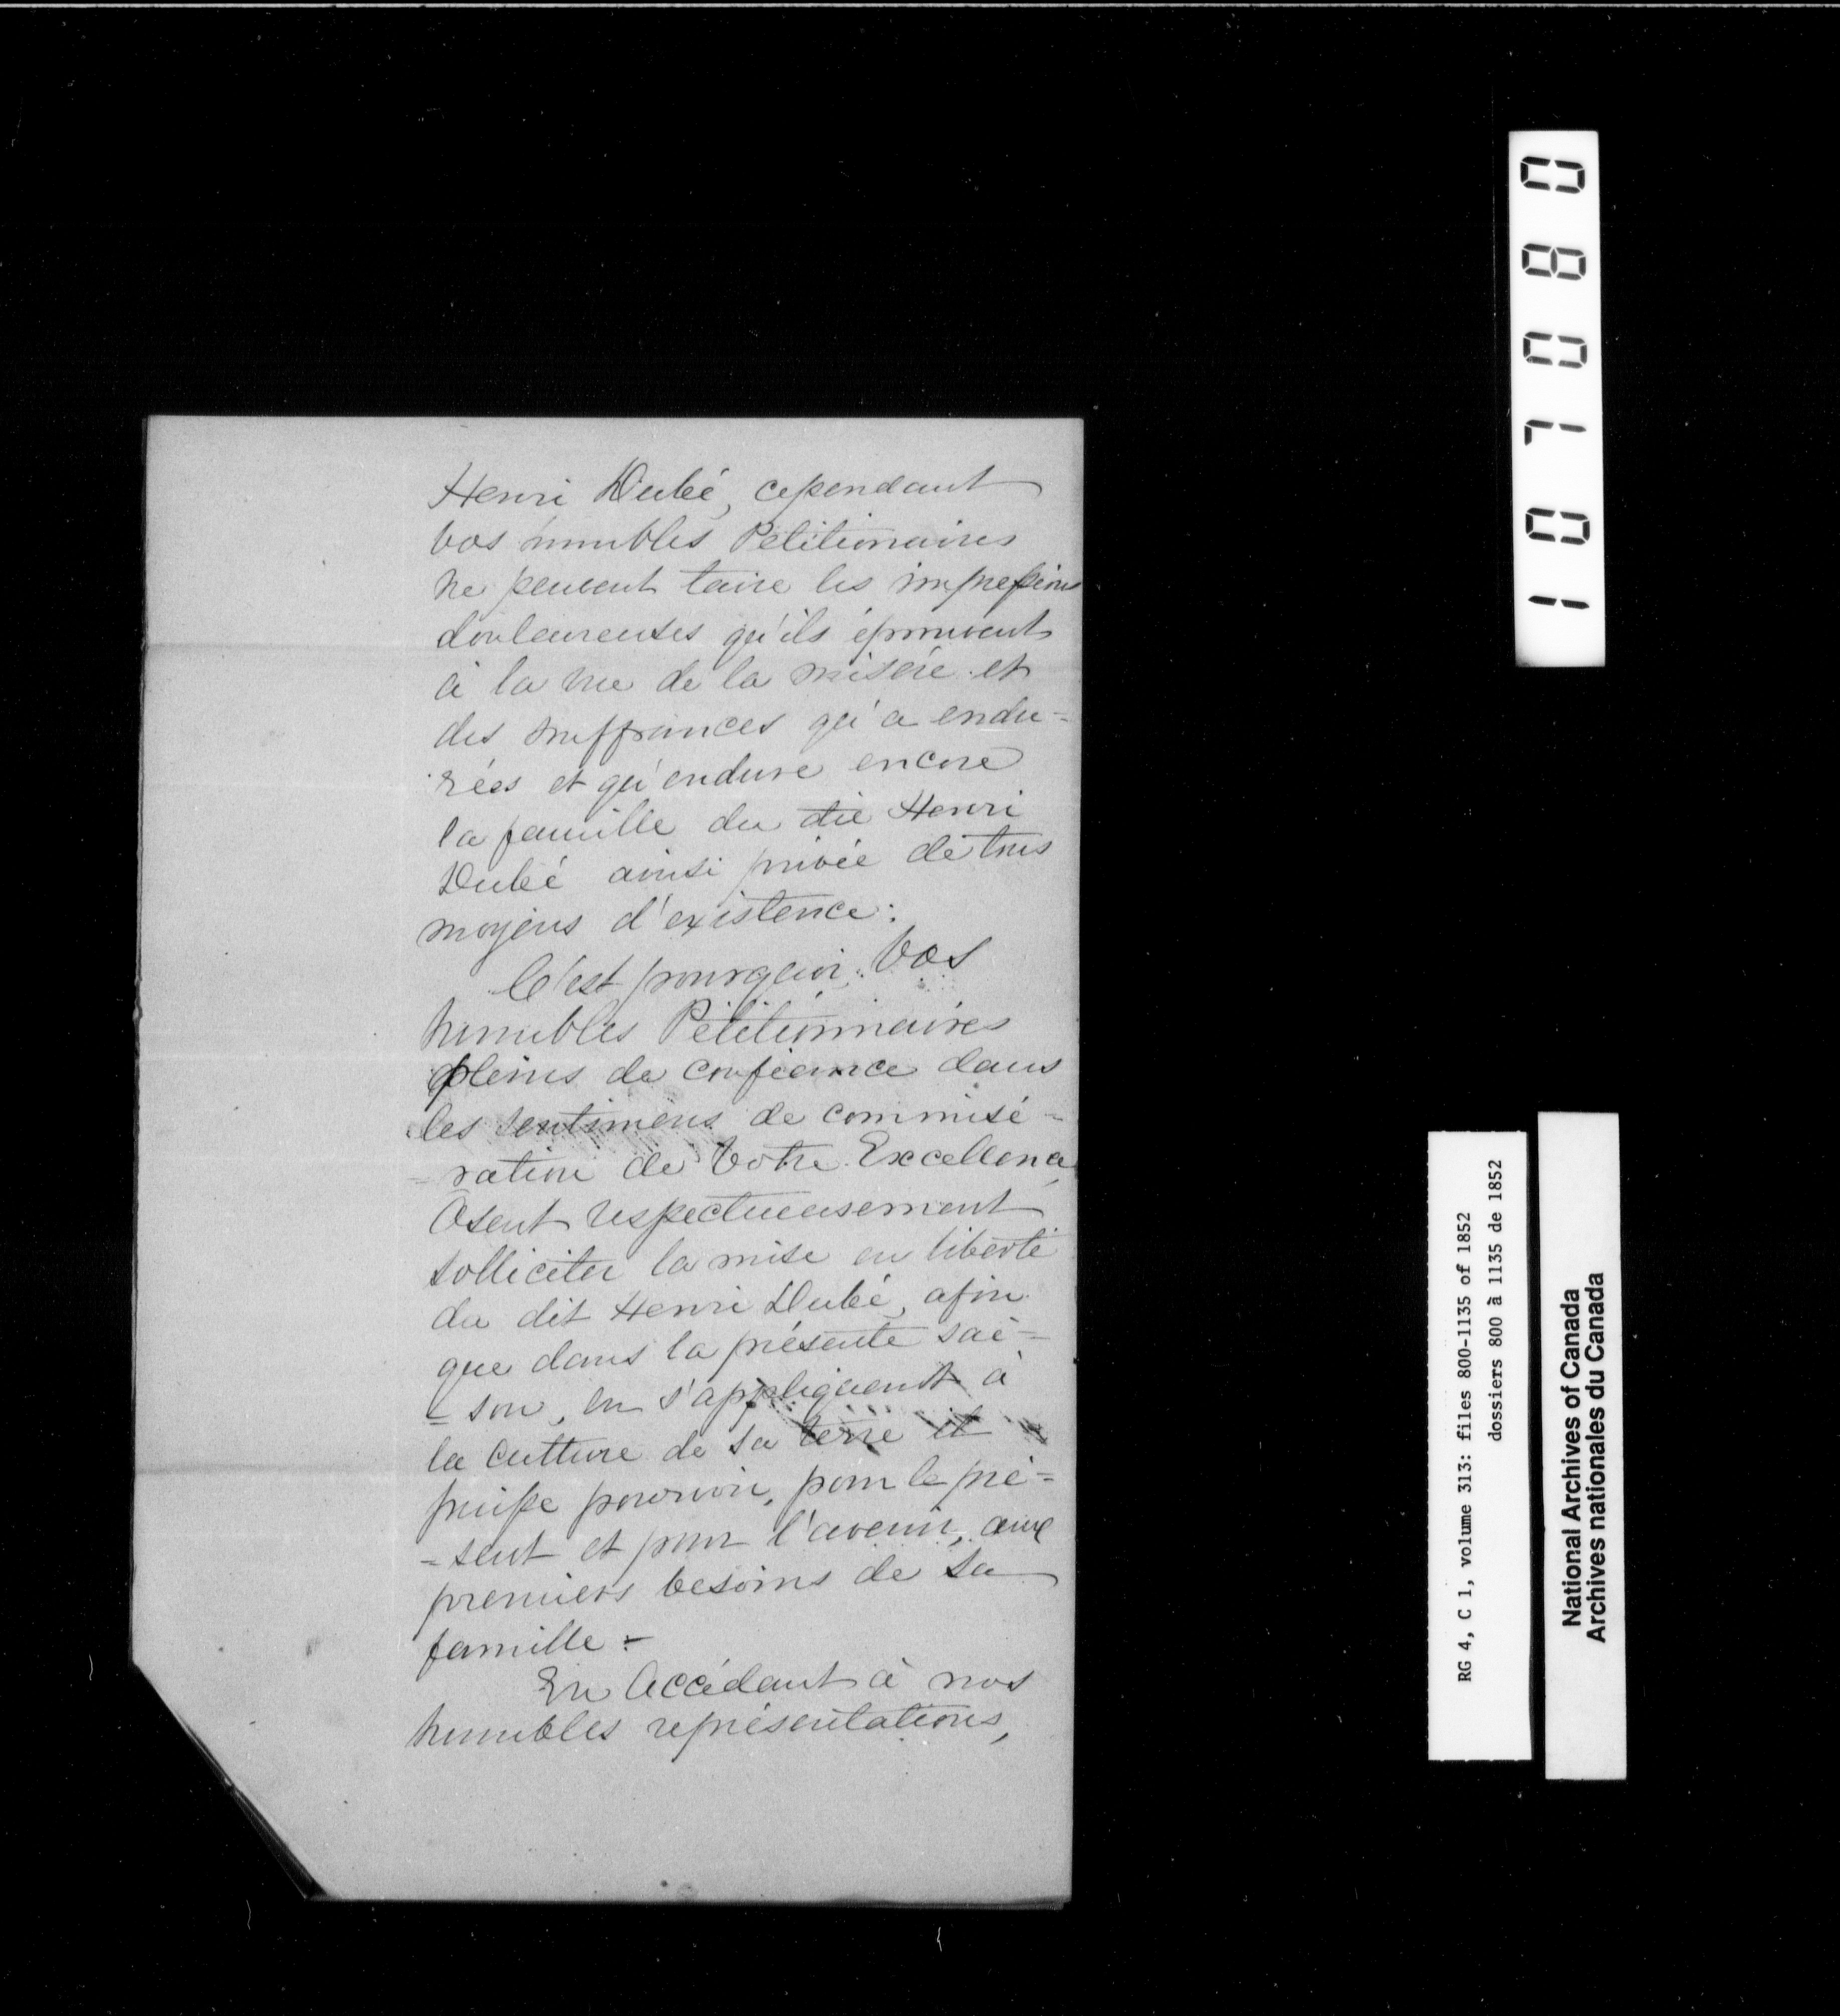 Henri Dubé, cependant
vos humbles Pétitionaires
ne peuvent taire les impressions
douleureuses qu'ils éprouvent
à la vue de la misère et
des souffrances qu'a endu=
rées et qu'endure encore
la famille du dit Henri
Dubé ainsi privée de tous
moyens d'existence:
C'est pourquoi, Vos
humbles Pétitionnaires
pleins de confiance dans
les sentimens de commisé=
=ration de Votre Excellence,
Osent respectueusement
solliciter la mise en liberté
du dit Henri Dubé, afin
que dans la présente sai=
=son, en s'appliquant à
la culture de sa terre il
puisse pourvoir, pour le pré=
=sent et pour l'avenir, aux
premiers besoins de sa
famille.=
En Accédant à nos
humbles représentations,
107080
RG 4, C 1, volume 313: files 800-1135 of 1852
dossiers 800 à 1135 de 1852
National Archives of Canada
Archives nationales du Canada